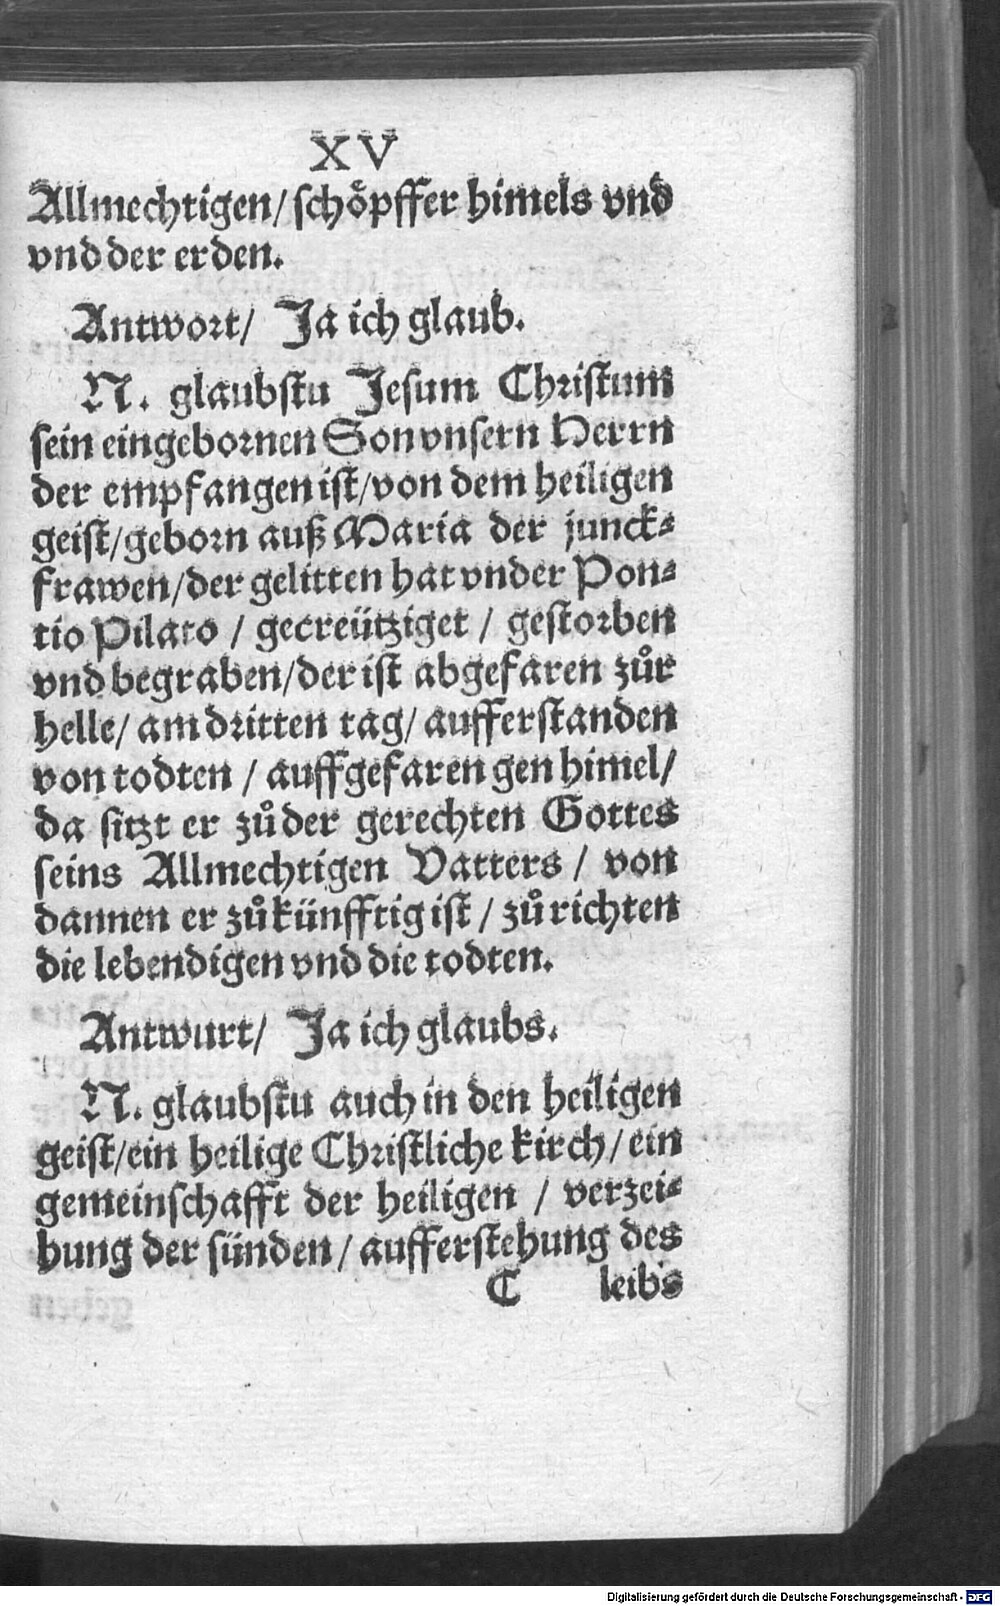 XV
Allmechtigen/ schöpffer himels vnd
vnd der erden.
Antwort/ Ja ich glaub.
N. glaubstu Jesum Christum
sein eingebornen Son vnsern Herrn
der empfangen ist/von dem heiligen
geist/geborn auß Maria der junck⸗
frawen/der gelitten hat vnder Pon⸗
tio Pilato / gecreütziget / gestorben
vnd begraben/der ist abgefaren zůr
helle/ am dritten tag/ aufferstanden
von todten / auffgefaren gen himel/
da sitzt er zů der gerechten Gottes
seins Allmechtigen Vatters / von
dannen er zůkünfftig ist / zů richten
die lebendigen vnd die todten.
Antwurt/ Ja ich glaubs.
N. glaubstu auch in den heiligen
geist/ein heilige Christliche kirch/ ein
gemeinschafft der heiligen / verzei⸗
hung der sünden / aufferstehung des
C leibs
Digitalisierung gefördert durch die Deutsche Forschungsgemeinschaft - DFG